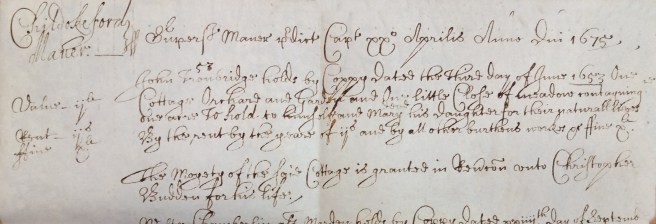 Childeokeford
Maner
Supervis Maner pdict Capt xxo Aprilis Anno Dni 1675
58
John Trowbridge holds by Coppy dated the Third day of June 1657 One
Value - ijli
Cottage Orchard and Garden and One little Close of meadow contayning
one acre To hold to himselfe and Mary his Daughter for their naturall lives
Rent - ijs
By the rent by the yeare of ijs and by all other burthens
ffine
The Moyety of the said Cottage is granted in Revercon unto Christopher
Budden for his life
holds by Coppy dated xxiiijth Day of Septem